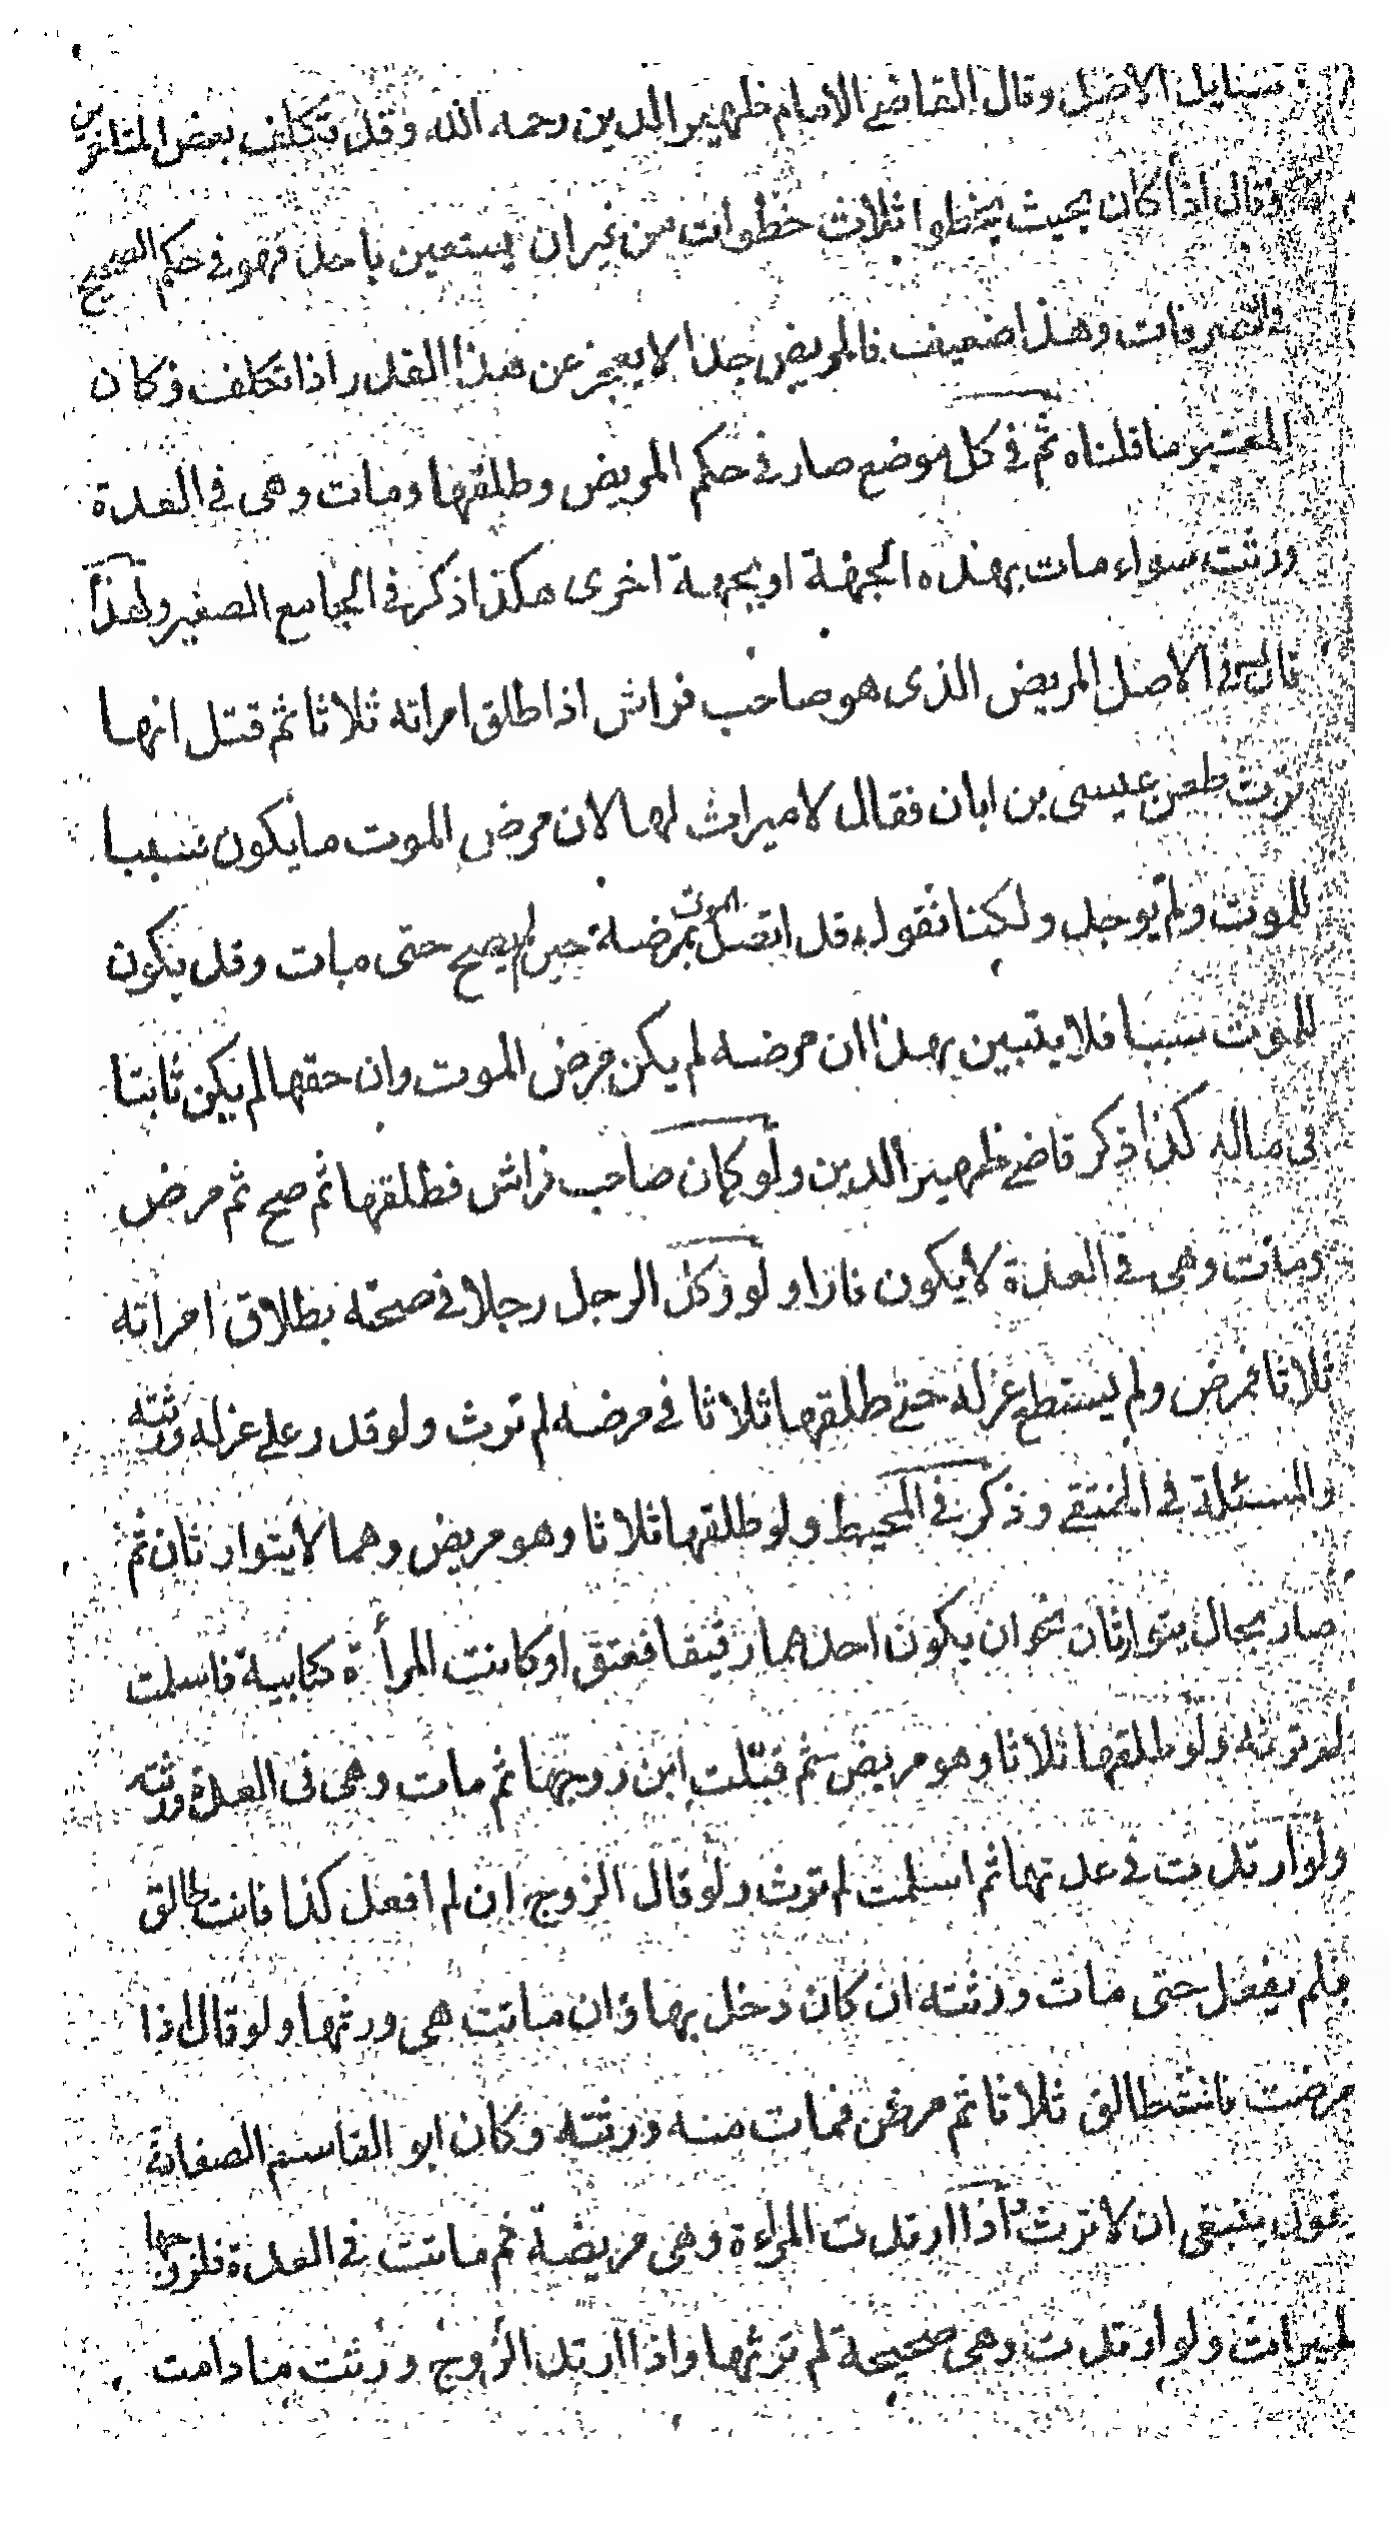 مسايل الاصل وقال القاضي الامام ظهير الدين رحمه الله وقد تكلف بعض المتاخرين
وقال اذا كان بحيث يخطوا ثلاث خطوات من غير ان يستعين باحد فهو في حكم الصحيح
في التصرفات وهذا ضعيف فالمريض جدا لا يعجز عن هذا القدر اذا تكلف وكان
المعتبر ما قلناه ثم في كل موضع صار في حكم المريض وطلقها ومات وهي في العدة
ورثت سواء مات بهذه الجهة او بجهة اخرى هكذا ذكر في الجامع الصغير ولهذا
قال في الاصل المريض الذى هو صاحب فراش اذا طلق امراته ثلاثا ثم قتل انها
ترث طعن عيسى بن ابان فقال لا ميراث لها لان مرض الموت ما يكون سببا
للموت ولم يوجد ولكنا نقول قد اتصل الموت بمرضه حين لم يصح حتى مات وقد يكون
للموت سببا فلا يتبين بهذا ان مرضه لم يكن مرض الموت وان حقها لم يكن ثابتا
في ماله كذا ذكر قاضي ظهير الدين ولو كان صاحب فراش فطلقها ثم صح ثم مرض
ومات وهي في العدة لا يكون فارا ولو وكل الرجل رجلا في صحته بطلاق امراته
ثلاثا فمرض ولم يستطع عزله حتى طلقها ثلاثا في مرضه لم ترث ولو قدر على عزله ورثته
والمسئلة في المنتقى وذكر في المحيط ولو طلقها ثلاثا وهو مريض وهما لا يتوارثان ثم
صار بحال يتوارثان نحو ان يكون احدهما رقيقا فعتق او كانت المرأة كتابية فاسلمت
لم ترثه ولو طلقها ثلاثا وهو مريض ثم قبلت ابن زوجها ثم مات وهي في العدة ورثته
ولو ارتدت في عدتها ثم اسلمت لم ترث ولو قال الزوج ان لم افعل كذا فانت طالق
فلم يفعل حتى مات ورثته ان كان دخل بها وان ماتت هي ورثها ولو قال اذا
مرضت فانت طالق ثلاثا ثم مرض فمات منه ورثته وكان ابو القاسم الصفار
يقول ينبغي ان لا ترث اذا ارتدت المراءة وهي مريضة ثم ماتت في العدة فلزوجها
الميراث ولو ارتدت وهي صحيحة لم ترثها واذا ارتد الزوج ورثت ما دامت